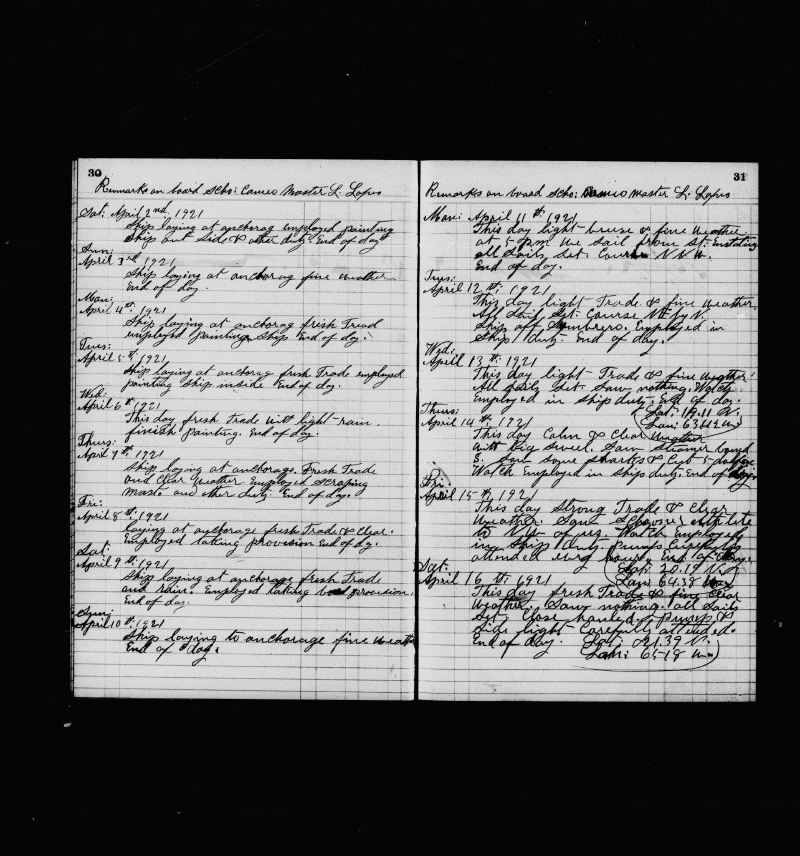 30
Remarks on board Scho: Cameo Master L. Lopes
Sat: April 2nd, 1921
Ship laying at anchorag employed painting
Ship out side & other duty. End of day
Sun:
April 3rd 1921
Ship laying at anchorag fine weather
End of day.
Mon:
April 4th, 1921
Ship laying at anchorag fresh Tread
employed painting Ship End of day.
Tues:
April 5th 1921
Ship laying at anchorag fresh Trade employed
painting ship inside End of day.
Wed:
April 6th 1921
This day fresh trade witt light rain.
finish Painting. End of day.
Thurs:
April 7th 1921
Ship laying at anchorage. Fresh Trade
and Clear Weather Employed Scraping
Masts and other duty. End of day.
Fri:
April 8th, 1921
Laying at anchorage fresh Trade & Clear.
Employed taking provision End of dy.
Sat:
April 9th, 1921
Ship laying at anchorage fresh Trade
and rain. Employed taking provision.
End of day.
Sun:
April 10th, 1921
Ship laying to anchorage fine weath
End of day.
31
Remarks on board Scho: Cameo Master L. Lopes
Mon: April 11th 1921
This day light breuse & fine Weather
at 5 pm We Sail from St: Enstating
all Sails Set. Course N N W.
End of day.
Tues:
April 12th, 1921
This day light Trade & fine Weather
All Sail Set: Course N E by N.
Ship off Sumbrero. Employed in
Ship duty. End of day.
Wed:
Apeil 13th, 1921
This day light Trade & fine Weather:
All Sails Set Saw nothing. Watch
Employed in Ship duty. End of day.
Lat: 19.11 N.
Lon: 63.42 W
Thurs:
April 14th, 1921
This day Calm & Clear Weather
witt big Swell. Saw Steamer bound
E. Saw Some Sharks &
Watch Employed in Ships duty: End of day.
Fri:
April 15th, 1921
This day Strong Trade & Clear
Weather. Saw Schooner
to N W of us. Watch Employed
in Ships duty. Pumps Carefully
attended every hours. End of day.
Lat: 20.19 N.
Lon: 64.38 W
Sat:
April 16th: 1921
This day fresh Trade & fine Clear
Weather. Saw nothing. all Sails
Set Close hauled. pump &
Side light Carefully attended.
End of day. Lat: 21.39 N.
Lon: 65.18 W